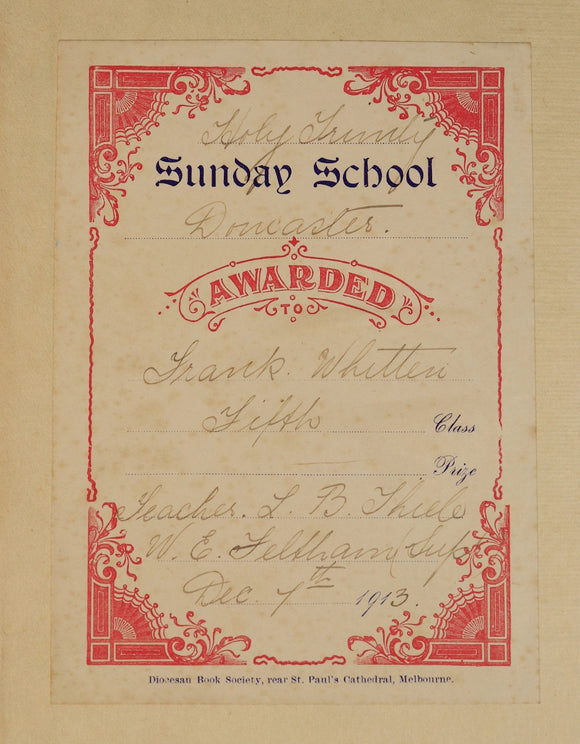 Holy Trinity
Sunday School
Doncaster.
AWARDED
TO
Frank. Whitten
Fifth Class
Prize
Teacher. L. B. Thiele
W. E. Feltham (Supt
Dec. 7th 1913.
Diocesan Book Society, rear St. Paul's Cathedral, Melbourne.